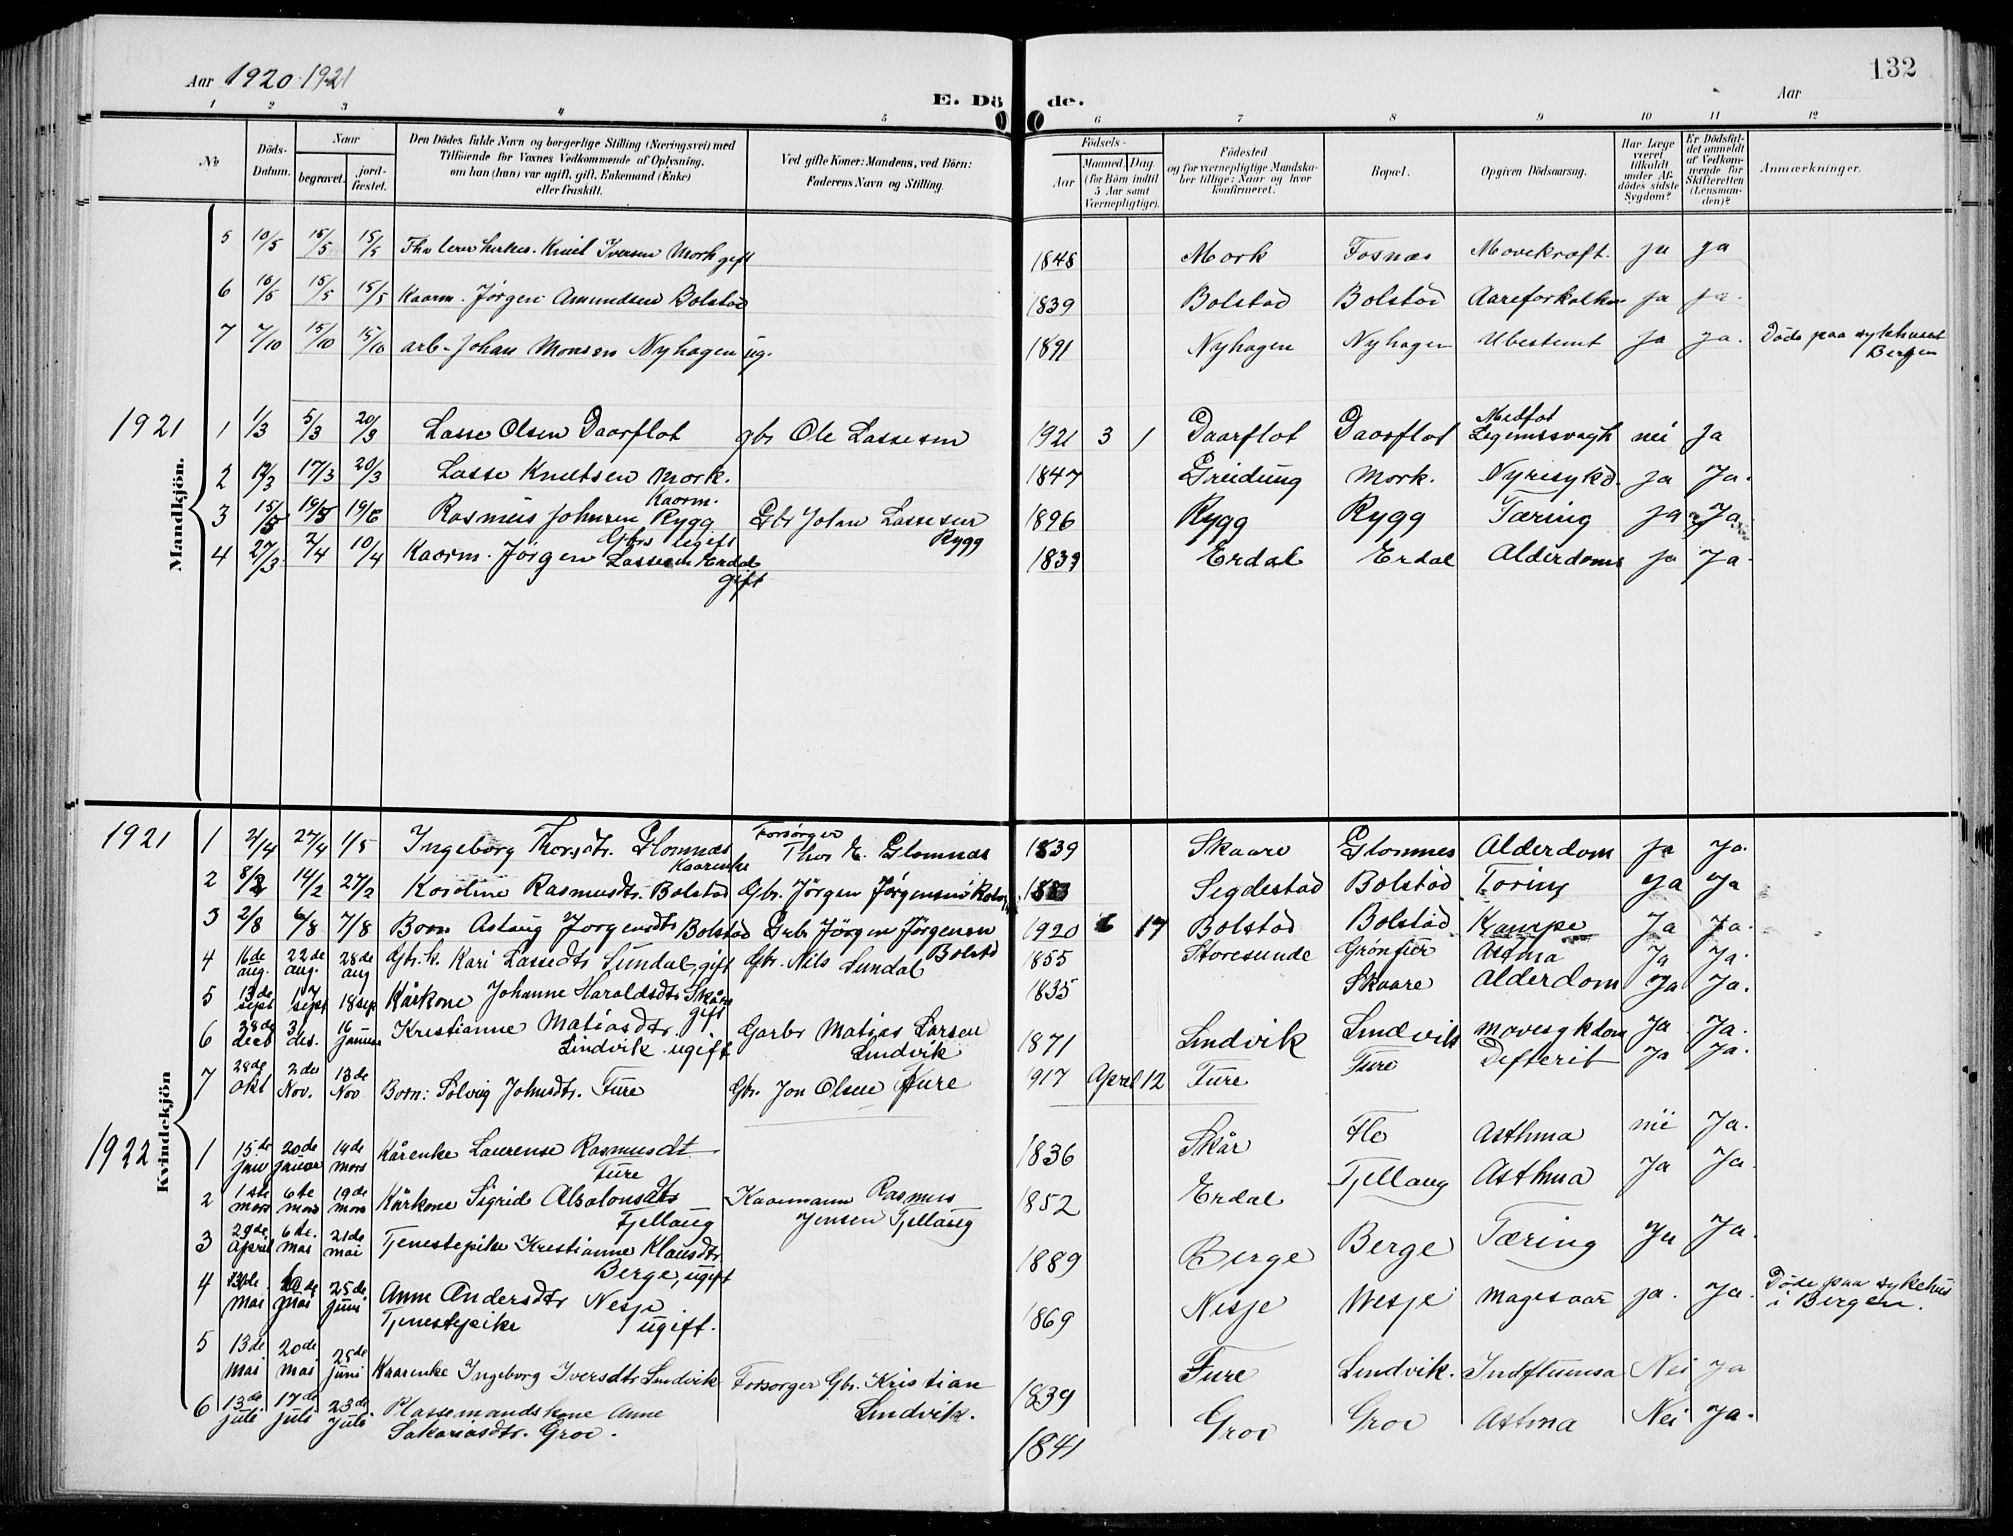 132
Aar 1920 1921
Aar
E. Dö de.
1 2 3 4 5 6 7 8 9 10 11 12
No
Döds-Datum.
Naar
begravet.
jord-fæstet.
Den Dödes fulde Navn og borgerlige Stilling (Næringsvei) med
Tilföiende for Voxnes Vedkommende af Oplysning,
om han (hun) var ugift, gift, Enkemand (Enke)
eller fraskilt.
Ved gifte Koner: Mandens, ved Börn:
Faderens Navn og Stilling.
Födsels-
Aar
Maaned Dag
(for Börn indtil
5 Aar samt
Værnepligtige).
Födested
og for værnepligtige Mandska-
ber tillige: Naar og hvor
konfirmeret.
Bopæl.
Opgiven Dödsaarsag.
Har Læge
været
tilkaldt
under Af-
dödes sidste
Sygdom?
Er Dödsfal-
det anmeldt
af Vedkom-
mende for
Skifteretten
(Lensman-
den)?
Anmærkninger.
5 10/5 15/5 15/5 Knut Iversen Mork gift 1848 Mork Fosnæs Mavekræft. ja ja
6 10/5 15/5 15/5 Kaarm. Jørgen Amundsen Bolstad 1839 Bolstad Bolstad Aareforkalkn ja ja.
7 7/10 15/10 15/10 arb. Johan Monsen Nyhagen ug. 1891 Nyhagen Nyhagen Ubestemt ja ja. Døde paa sykhuset
Bergen
1921
Mandkjön.
1 1/3 5/3 20/3 Lasse Olsen Daarflot gbr Ole Lassesen 1921 3 1 Daarflot Daarflot Medføt
Legemssvagh nei ja
2 12/3 17/3 20/3 Lasse Knutsen Mork. 1847 Greidung Mork. Nyresykd. ja Ja.
3 15/5 19/5 19/6 Rasmus Johnsen Rygg Gbr Johan Lassesen
Rygg 1896 Rygg Rygg Tæring ja Ja
Gbr ugift
4 27/3 2/4 10/4 Kaarm. Jörgen Lassesen Erdal
gift 1839 Erdal Erdal Alderdoms ja Ja.
1921
Kvindekjön
1 21/4 27/4 1/5 Ingeborg Thorsdtr. Glomnæs
Kaarenke Forsörger
Thor E. Glomnæs 1839 Skaare Glomnes Alderdom ja Ja.
2 8/2 14/2 27/2 Karoline Rasmusdtr. Bolstad Gbr. Jörgen Jørgensen 1883 Segdestad Bolstad Tæring ja Ja
3 2/8 6/8 7/8 Barn Aslaug Jorgensdtr Bolstad Grbr Jörgen Jörgensen
Bolstd 1920 6 17 Bolstad Bolstad Krampe Ja Ja.
4 16de aug. 22de aug. 28de aug Gbr.k. Kari Lassedtr Sundal, gift Gbr. Nils Sundal 1855 Storesunde Grönfur Astma Ja Ja.
5 13de sept 17 sept 18 sep Kårkone Johanne Haraldsdtr Skåre
gift 1835 Skaare Alderdom Ja Ja.
6 28de decb 3 des. 16 januar Kristianne Matiasdtr.
Lindvik ugift Garbr Matias Larsen
Lindvik 1871 Lindvik Lindvik Mavesykdom Ja Ja.
7 28de Okt 2de Nov. 13de Nov Barn: Solveig Johnsdtr. Fure Gbr. Jon Olsen Fure 1917 April 12 Fure Fure Difterit Ja Ja.
1922
1 15de jan 20de januar 19de mars Kårenke Laurense Rasmusdt
Fure 1836 Skår Flo Asthma nei Ja.
2 1ste mars 6te mars 19de mars Kårkone Sigrid Absalonsdtr
Fjellaug Kaarmann Rasmus
Jensen Fjellaug 1852 Erdal Fjellaug Asthma Ja Ja.
3 29de April 6te. mai 21de mai Tjenestepike Kristianne Klausdtr
Berge, ugift 1889 Berge Berge Tæring Ja Ja.
4 mai mai 25de juni Anne Andersdtr Nesje
Tjenestepike ugift. 1869 Nesje Nesje Magesaar ja. Ja. Døde paa sykehus
i Bergen.
5 13de mai 20de mai 25de juni Kaarenke Ingeborg Iversdtr Lindvik Forsorger Gbr. Kristian
Lindvik. 1839 Fure Lindvik. Indfluensa Nei ja
6 13de juli 17de juli 23de. juli Plassemandskone Anne
Sakariasdtr. Grov. 1841 Grov Grov Astma Nei ja.